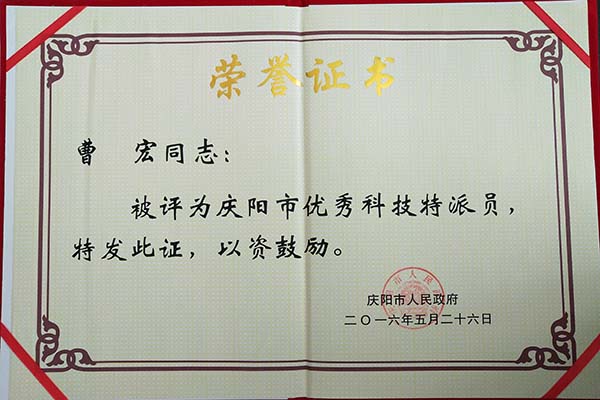 荣誉证书
曹 宏同志：
被评为庆阳市优秀科技特派员，
特发此证，以资鼓励。
庆阳市人民政府
二〇一六年五月二十六日